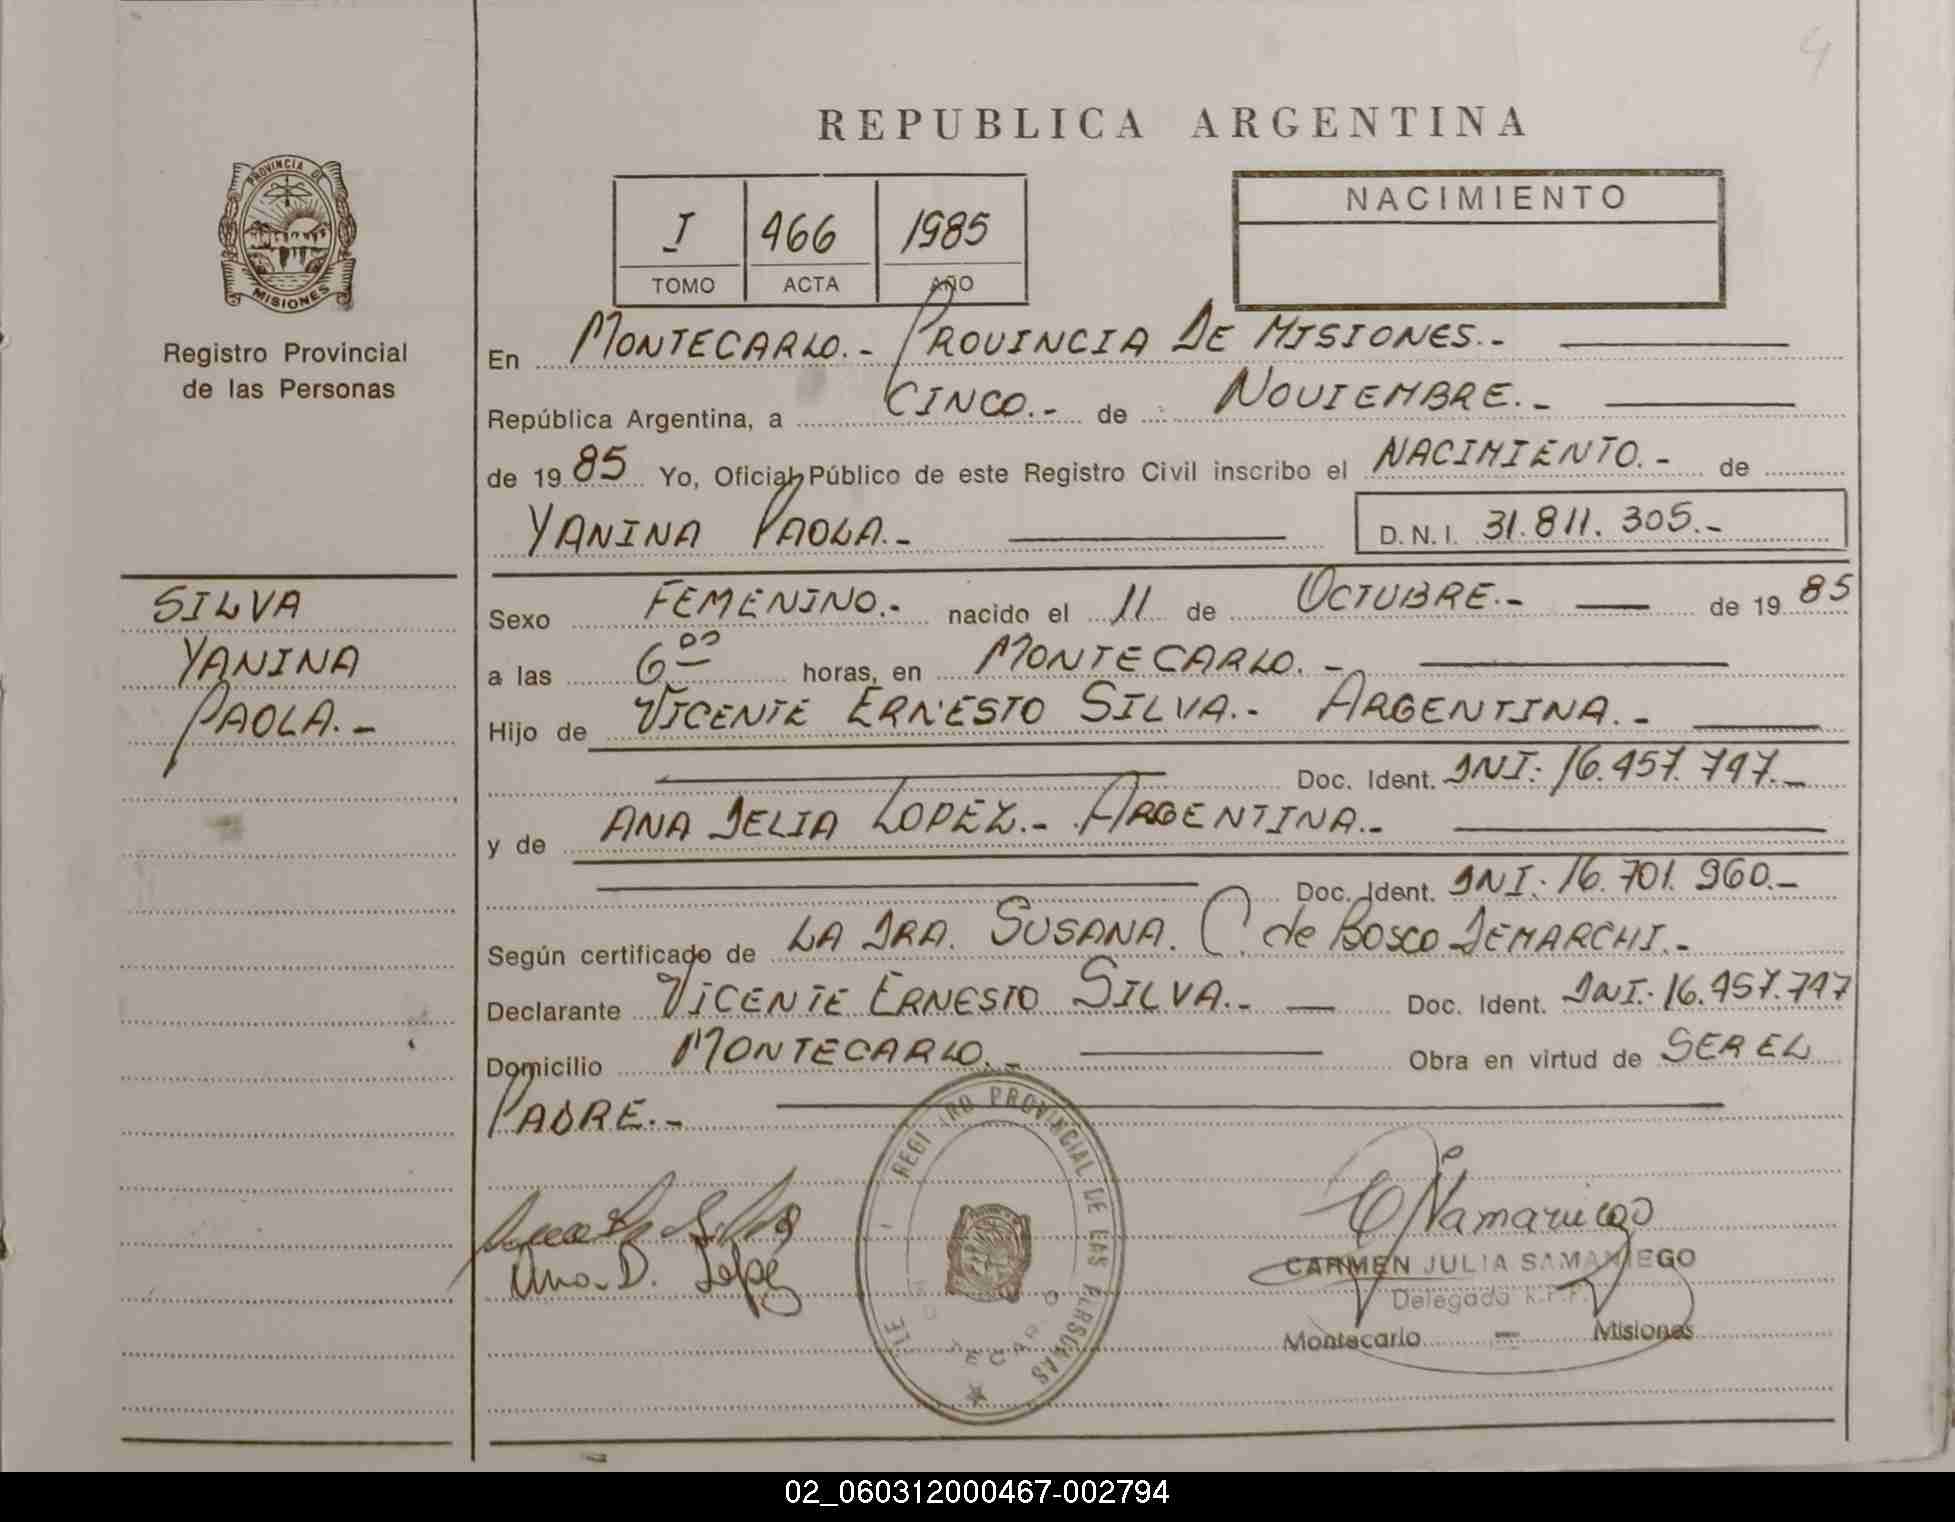 4
REPUBLICA ARGENTINA
PROVINCIA DE
MISIONES
Registro Provincial
de las Personas
I 466 1985
TOMO ACTA AÑO
NACIMIENTO
En MONTECARLO.- PROVINCIA DE MISIONES.-
República Argentina, a CINCO.- de NOVIEMBRE.-
de 1985 Yo, Oficial Público de este Registro Civil inscribo el NACIMIENTO.- de
YANINA PAOLA.- D.N.I. 31.811.305.-
SILVA
YANINA
PAOLA.-
Sexo FEMENINO.- nacido el 11 de OCTUBRE.- de 1985
a las 6 00 horas, en MONTECARLO.-
Hijo de VICENTE ERNESTO SILVA.- ARGENTINA.-
Doc. Ident. DNI: 16.457.747.-
y de ANA DELIA LOPEZ.- ARGENTINA.-
Doc. Ident. DNI: 16.701.960.-
Según certificado de LA DRA. SUSANA. C. de BOSCO DEMARCHI.-
Declarante VICENTE ERNESTO SILVA.- Doc. Ident. DNI: 16.457.747
Domicilio MONTECARLO.- Obra en virtud de SER EL
PADRE.-
REGISTRO PROVINCIAL DE LAS PERSONAS
Ana D. Lopez
CARMEN JULIA SAMANIEGO
Delegada
Montecarlo - Misiones
02_060312000467-002794